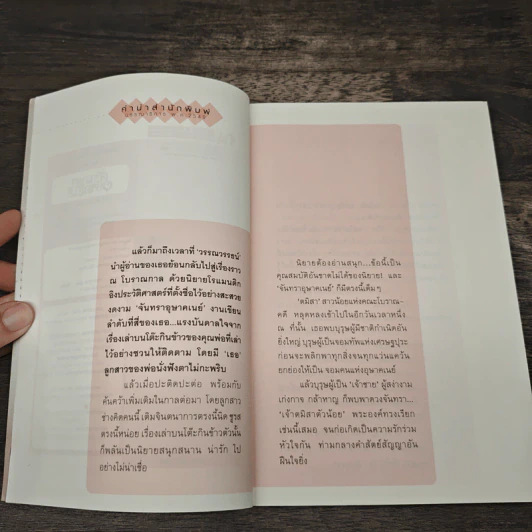 คำนำสำนักพิมพ์
แล้วก็มาถึงเวลาที่ 'วรรณวรรธน์'
นำผู้อ่านของเธอย้อนกลับไปสู่เรื่องราว
ณ โบราณกาล ด้วยนิยายโรแมนติก
อิงประวัติศาสตร์ที่ตั้งชื่อไว้อย่างสะสวย
งดงาม 'จันทราอุษาคเนย์' งานเขียน
ลำดับที่สี่ของเธอ...แรงบันดาลใจจาก
เรื่องเล่าบนโต๊ะกินข้าวของคุณพ่อที่เล่า
ไว้อย่างชวนให้ติดตาม โดยมี 'เธอ'
ลูกสาวของพ่อนั่งฟังตาไม่กะพริบ
แล้วเมื่อปะติดปะต่อ พร้อมกับ
ค้นคว้าเพิ่มเติมในกาลต่อมา โดยลูกสาว
ช่างคิดคนนี้ เติมจินตนาการตรงนี้นิด
ตรงนี้หน่อย เรื่องเล่าบนโต๊ะกินข้าวตัวนั้น
ก็พลันเป็นนิยายสนุกสนาน น่ารัก ไป
อย่างไม่น่าเชื่อ
นิยายต้องอ่านสนุก...ข้อนี้เป็น
คุณสมบัติอันขาดไม่ได้ของนิยาย! และ
'จันทราอุษาคเนย์' ก็มีตรงนี้เต็มๆ
'ตมิสา' สาวน้อยแห่งคณะโบราณ-
คดี หลุดหลงเข้าไปในอีกวันเวลาหนึ่ง
ณ ที่นั้น เธอพบบุรุษผู้มีชาติกำเนิดอัน
ยิ่งใหญ่ บุรุษผู้เป็นจอมทัพแห่งเศรษฐปุระ
ก่อนจะพลิกพาทุกสิ่งจนทุกแว่นแคว้น
ยกย่องให้เป็น จอมคนแห่งอุษาคเนย์
แล้วบุรุษผู้เป็น 'เจ้าชาย' ผู้สง่างาม
เก่งกาจ กล้าหาญ ก็พบพาดวงจันทรา...
'เจ้าตมิสาตัวน้อย' พระองค์ทรงเรียก
เช่นนี้เสมอ จนก่อเกิดเป็นความรักร่วม
หัวใจกัน ท่ามกลางคำสัตย์สัญญาอัน
ฝืนใจยิ่ง